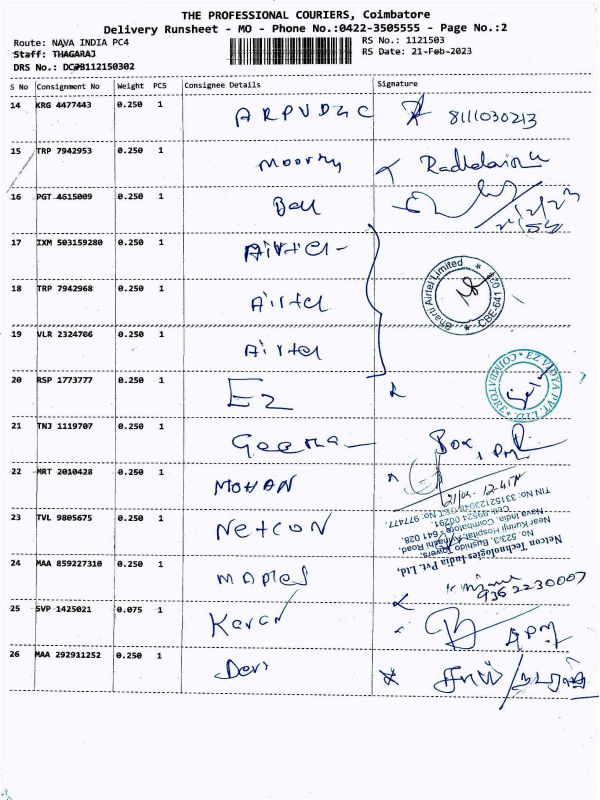 THE PROFESSIONAL COURIERS, Coimbatore
Delivery Runsheet - MO - Phone No.:0422-3505555 - Page No.:2
Route: NAVA INDIA PC4 RS No.: 1121503
Staff: THAGARAJ RS Date: 21-Feb-2023
DRS No.: DCJB112150302
S No Consignment No Weight PCS Consignee Details Signature
14 KRG 4477443 0.250 1 8111030213
15 TRP 7942953 0.250 1 Moorthy
16 PGT 4615009 0.250 1
17 IXM 503159280 0.250 1 Airtel
18 TRP 7942968 0.250 1 Airtel
Bharti Airtel Limited * CBE-641 028 *
19 VLR 2324706 0.250 1 Airtel
20 RSP 1773777 0.250 1 EZ
EZ VIDYA PVT. LTD. * COIMBATORE *
21 TNJ 1119707 0.250 1
22 MRT 2010428 0.250 1 MOHAN
23 TVL 9805675 0.250 1 NetCON
Netcon Technologies India Pvt. Ltd.
No. 523/3, Bushido Towers,
Near Kurinji Hospital, Avinashi Road,
Nava India, Coimbatore - 641 028.
24 MAA 859227310 0.250 1 Maples
9362230007
25 SVP 1425021 0.075 1 Karan
26 MAA 292911252 0.250 1 Devi